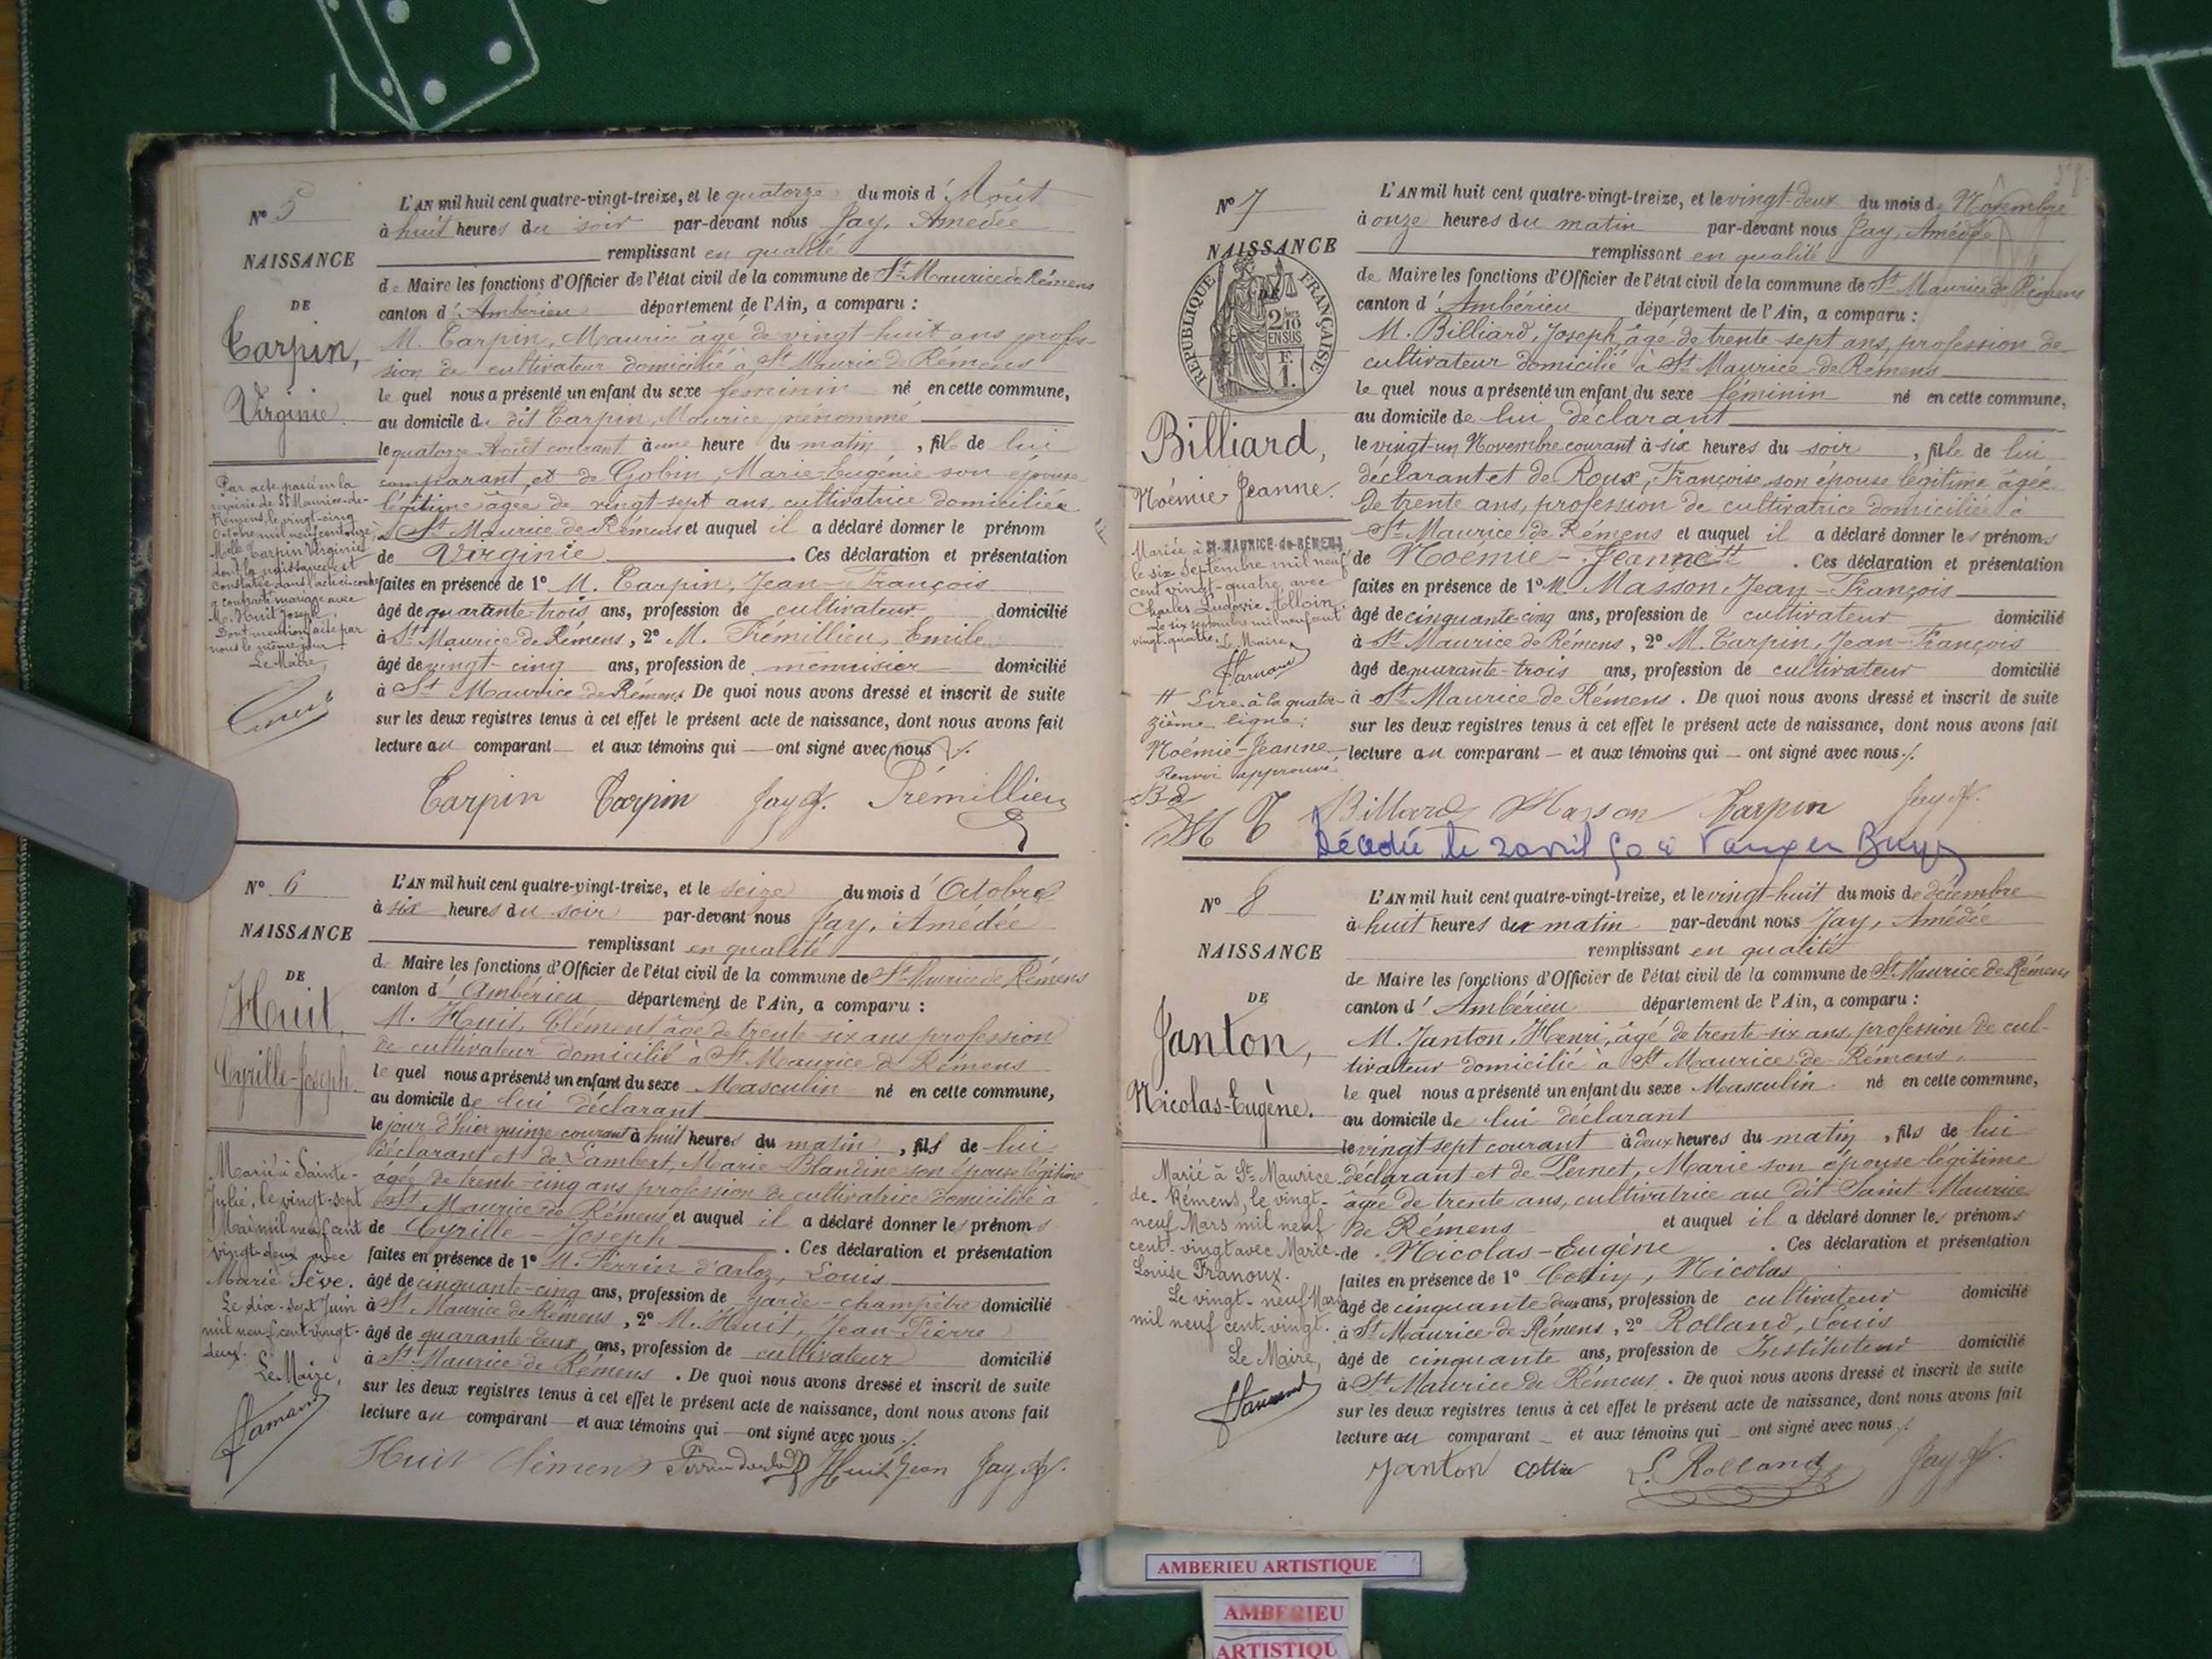 N° 5
NAISSANCE
DE
Carpin,
Virginie
L'AN mil huit cent quatre-vingt-treize, et le quatorze du mois d'Août
à huit heures du soir par-devant nous Jay, Amédée
remplissant en qualité
de Maire les fonctions d'Officier de l'état civil de la commune de St Maurice de Rémens
canton d'Ambérieu département de l'Ain, a comparu :
M. Carpin, Maurice âgé de vingt-huit ans profes-
sion de cultivateur domicilié à St Maurice de Rémens
le quel nous a présenté un enfant du sexe féminin né en cette commune,
au domicile du dit Carpin, Maurice prénommé
le quatorze Août courant à une heure du matin, fille de lui
comparant et de Gobin, Marie-Eugénie son épouse
légitime âgée de vingt-sept ans, cultivatrice domiciliée
à St Maurice de Rémens et auquel il a déclaré donner le prénom
de Virginie. Ces déclaration et présentation
faites en présence de 1° M. Carpin, Jean-François
âgé de quarante-trois ans, profession de cultivateur domicilié
à St Maurice de Rémens, 2° M. Prémillieu, Emile
âgé de vingt-cinq ans, profession de menuisier domicilié
à St Maurice de Rémens De quoi nous avons dressé et inscrit de suite
sur les deux registres tenus à cet effet le présent acte de naissance, dont nous avons fait
lecture au comparant et aux témoins qui ont signé avec nous
Par acte passé en la
mairie de St Maurice-de-
Rémens, le vingt-cinq
Octobre mil neuf cent
Melle Carpin Virginie
dont la naissance est
constatée dans l'acte ci-contre
a contracté mariage avec
M. Huit Joseph.
Dont mention faite par
nous le même jour
Le Maire,
Carpin Carpin Jay A. Prémillieu
N° 6
NAISSANCE
DE
Huit,
Cyrille-Joseph
L'AN mil huit cent quatre-vingt-treize, et le seize du mois d'Octobre
à six heures du soir par-devant nous Jay, Amédée
remplissant en qualité
de Maire les fonctions d'Officier de l'état civil de la commune de St Maurice de Rémens
canton d'Ambérieu département de l'Ain, a comparu :
M. Huit, Clément âgé de trente-six ans profession
de cultivateur domicilié à St Maurice de Rémens
le quel nous a présenté un enfant du sexe Masculin né en cette commune,
au domicile de lui déclarant
le jour d'hier quinze courant à huit heures du matin, fils de lui
déclarant et de Lambert, Marie-Blandine son épouse légitime
âgée de trente-cinq ans profession de cultivatrice domiciliée à
St Maurice de Rémens et auquel il a déclaré donner les prénoms
de Cyrille-Joseph. Ces déclaration et présentation
faites en présence de 1° M. Perrin d'arloz, Louis
âgé de cinquante-cinq ans, profession de garde-champêtre domicilié
à St Maurice de Rémens, 2° M. Huit, Jean-Pierre
âgé de quarante-deux ans, profession de cultivateur domicilié
à St Maurice de Rémens. De quoi nous avons dressé et inscrit de suite
sur les deux registres tenus à cet effet le présent acte de naissance, dont nous avons fait
lecture au comparant et aux témoins qui ont signé avec nous
Marié à Sainte-
Julie, le vingt-sept
Mai mil neuf cent
vingt-deux avec
Marie Sève.
Le dix-sept Juin
mil neuf cent vingt-
deux.
Le Maire,
Huit Clément Huit Jean Jay A.
N° 7
NAISSANCE
DE
RÉPUBLIQUE FRANÇAISE
2/10 EN SUS
F. 1.
Billiard,
Noémie Jeanne.
L'AN mil huit cent quatre-vingt-treize, et le vingt-deux du mois de Novembre
à onze heures du matin par-devant nous Jay, Amédée
remplissant en qualité
de Maire les fonctions d'Officier de l'état civil de la commune de St Maurice de Rémens
canton d'Ambérieu département de l'Ain, a comparu :
M. Billiard, Joseph, âgé de trente-sept ans, profession de
cultivateur domicilié à St Maurice de Rémens
le quel nous a présenté un enfant du sexe féminin né en cette commune,
au domicile de lui déclarant
le vingt-un Novembre courant à six heures du soir, fille de lui
déclarant et de Roux, Françoise son épouse légitime âgée
de trente ans, profession de cultivatrice domiciliée à
St Maurice de Rémens et auquel il a déclaré donner les prénoms
de Noémie-Jeanne. Ces déclaration et présentation
faites en présence de 1° M. Masson, Jean-François
âgé de cinquante-cinq ans, profession de cultivateur domicilié
à St Maurice de Rémens, 2° M. Carpin, Jean-François
âgé de quarante-trois ans, profession de cultivateur domicilié
à St Maurice de Rémens. De quoi nous avons dressé et inscrit de suite
sur les deux registres tenus à cet effet le présent acte de naissance, dont nous avons fait
lecture au comparant et aux témoins qui ont signé avec nous
Mariée à St-MAURICE-de-RÉMENS
le six Septembre mil neuf
cent vingt-quatre, avec
Charles Ludovic Alloin
Le six septembre mil neuf cent
vingt-quatre. Le Maire
Lire à la quator-
zième ligne:
Noémie-Jeanne
Renvoi approuvé
Bd
M C
Billiard Masson Carpin Jay A.
Décédée le 2 avril 50 à Vaux en Bugey
N° 8
NAISSANCE
DE
Janton,
Nicolas-Eugène.
L'AN mil huit cent quatre-vingt-treize, et le vingt-huit du mois de décembre
à huit heures du matin par-devant nous Jay, Amédée
remplissant en qualité
de Maire les fonctions d'Officier de l'état civil de la commune de St Maurice de Rémens
canton d'Ambérieu département de l'Ain, a comparu :
M. Janton, Henri, âgé de trente-six ans, profession de cul-
tivateur domicilié à St Maurice de Rémens.
le quel nous a présenté un enfant du sexe Masculin né en cette commune,
au domicile de lui déclarant
le vingt sept courant à deux heures du matin, fils de lui
déclarant et de Pernet, Marie son épouse légitime
âgée de trente ans, cultivatrice au dit Saint Maurice
de Rémens et auquel il a déclaré donner les prénoms
de Nicolas-Eugène. Ces déclaration et présentation
faites en présence de 1° Cottin, Nicolas
âgé de cinquante-deux ans, profession de cultivateur domicilié
à St Maurice de Rémens, 2° Rolland, Louis
âgé de cinquante ans, profession de Instituteur domicilié
à St Maurice de Rémens. De quoi nous avons dressé et inscrit de suite
sur les deux registres tenus à cet effet le présent acte de naissance, dont nous avons fait
lecture au comparant et aux témoins qui ont signé avec nous
Marié à St Maurice
de-Rémens, le vingt-
neuf Mars mil neuf
cent-vingt avec Marie-
Louise Franoux.
Le vingt-neuf Mars
mil neuf cent-vingt.
Le Maire,
Janton Cottin L. Rolland Jay A.
AMBERIEU ARTISTIQUE
AMBERIEU
ARTISTIQU